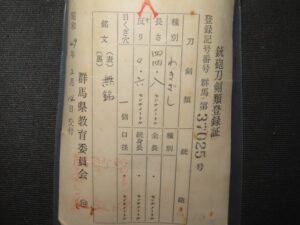 銃砲刀剣類登録証
登録記号番号 群馬 第37025号
刀剣類 銃砲
種別 わきざし 種別
長さ 四四・八 センチメートル 全長 ・ センチメートル
反り 〇・六 センチメートル 銃身長 ・ センチメートル
目くぎ穴 一個 口径 ・ センチメートル
銘文 (表) 無銘
(裏)
群馬県教育委員会